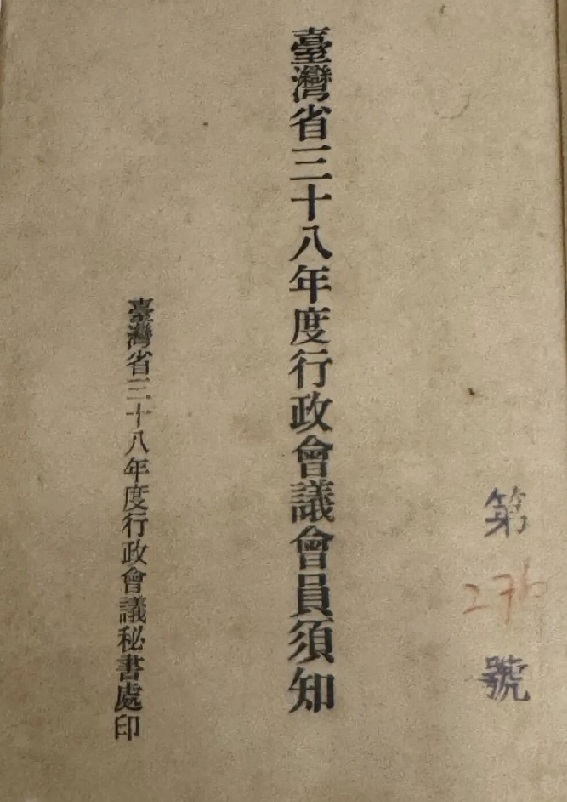 第
276
號
臺灣省三十八年度行政會議會員須知
臺灣省三十八年度行政會議秘書處印